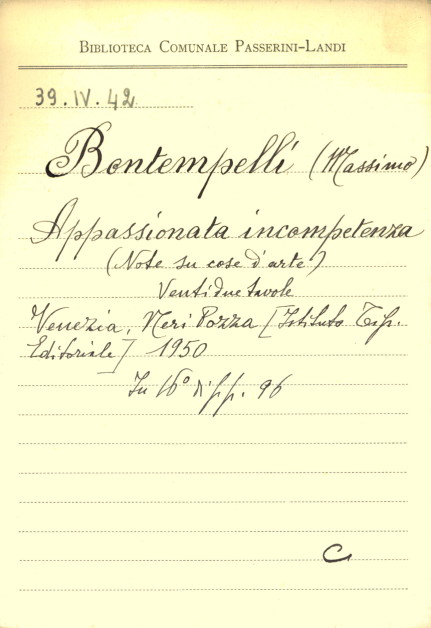 BIBLIOTECA COMUNALE PASSERINI-LANDI
39.IV.42
Bontempelli (Massimo)
Appassionata incompetenza
(Note su cose d'arte)
Ventidue tavole
Venezia, Neri Pozza [Istituto Tip.
Editoriale] 1950
In 16° di pp. 96
C